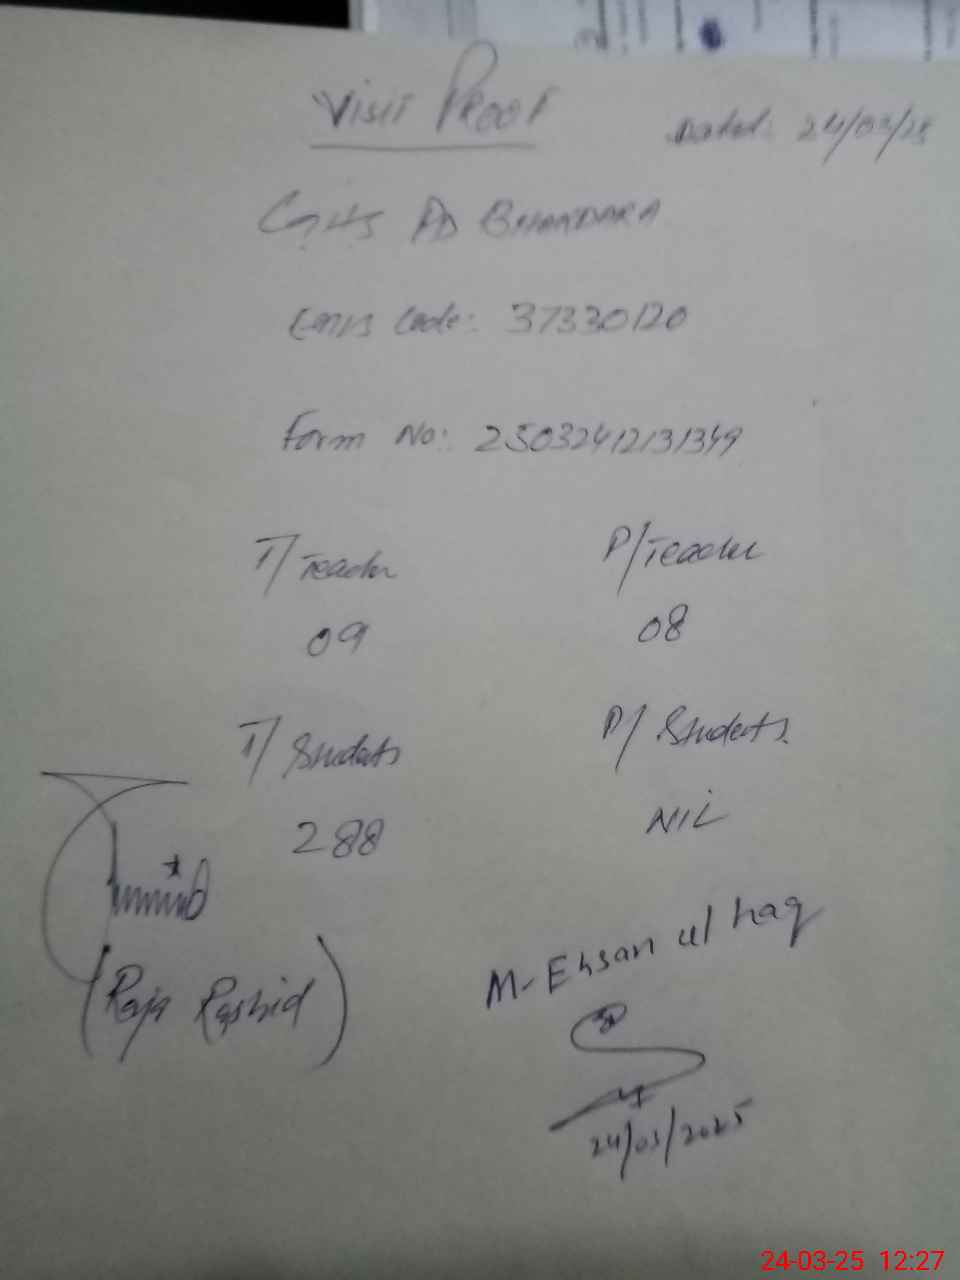 Visit Proof
Dated: 24/03/25
GHS PD BHANDARA
Emis Code: 37330120
Form No: 25032412131349
T/Teacher P/Teacher
09 08
T/Students P/Students
288 NIL
(Raja Rashid)
M-Ehsan ul haq
24/03/2025
24-03-25 12:27